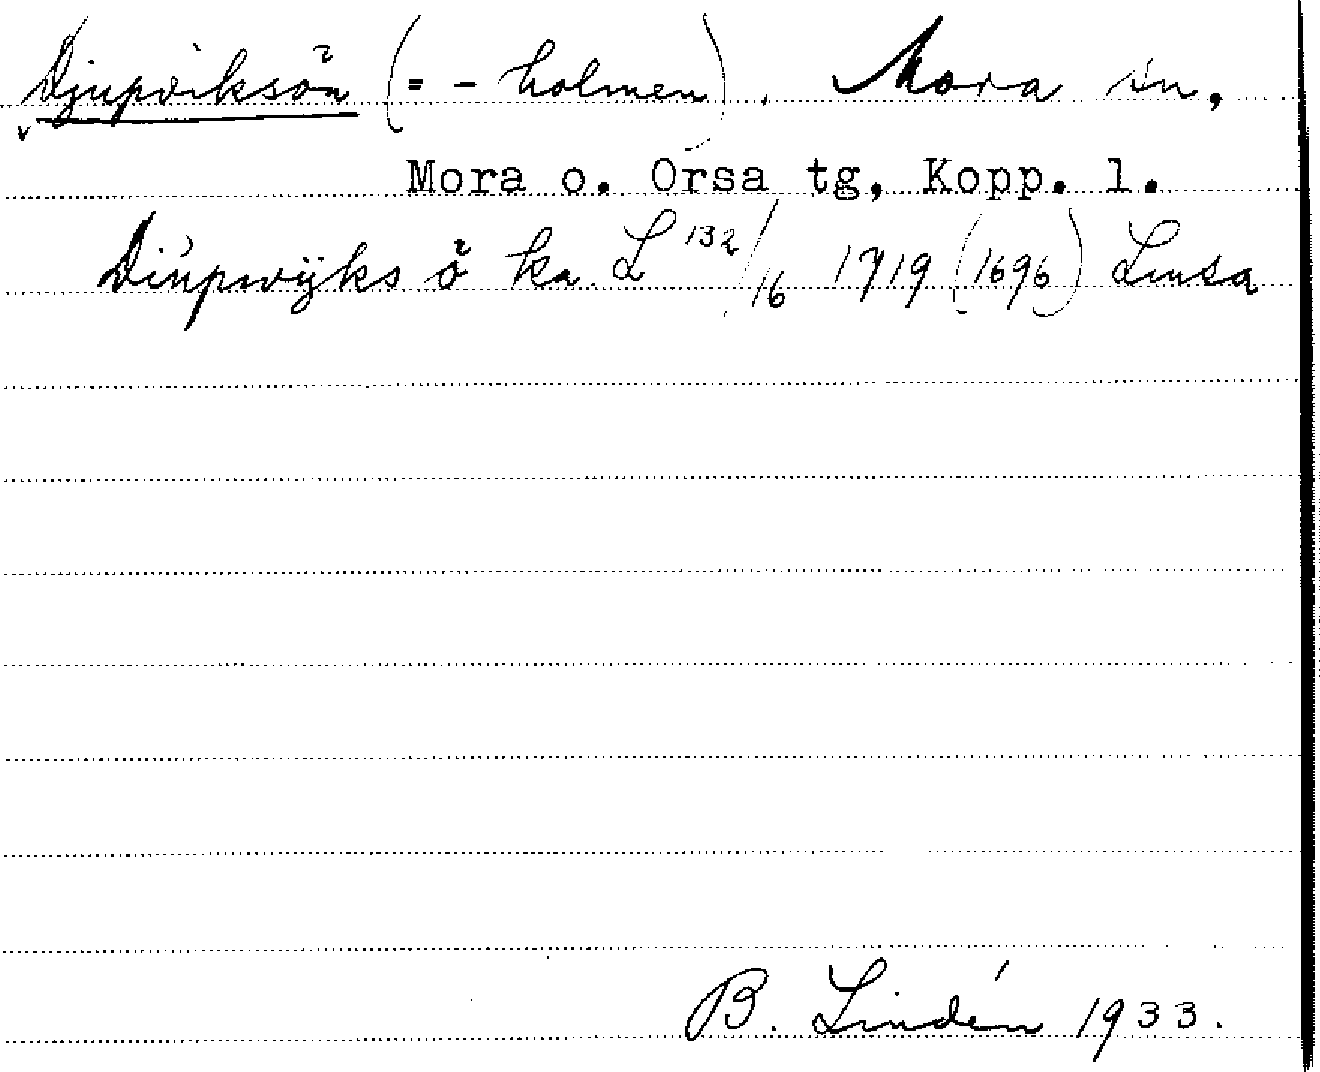 Djupviksön (= -holmen). Mora sn,
Mora o. Orsa tg, Kopp. l.
Diupwijks ö ka. L 132/16 1719 (1696) Lmsa
B. Lindén 1933.